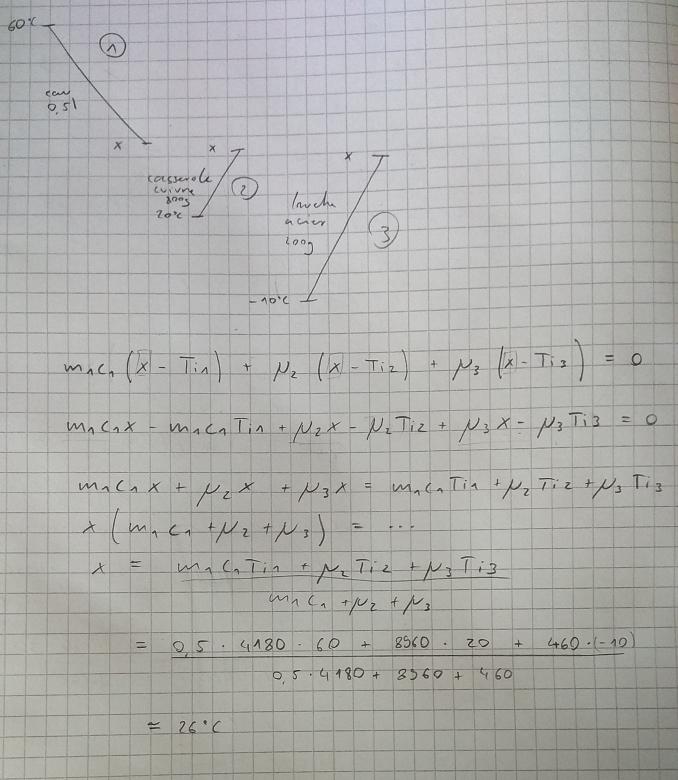 60°C
①
eau
0,5l
x
x
casserole
cuivre
800g
20°C
②
x
louche
acier
200g
③
-10°C
m₁c₁(x - Ti₁) + μ₂(x - Ti₂) + μ₃(x - Ti₃) = 0
m₁c₁x - m₁c₁Ti₁ + μ₂x - μ₂Ti₂ + μ₃x - μ₃Ti₃ = 0
m₁c₁x + μ₂x + μ₃x = m₁c₁Ti₁ + μ₂Ti₂ + μ₃Ti₃
x(m₁c₁ + μ₂ + μ₃) = ...
x = m₁c₁Ti₁ + μ₂Ti₂ + μ₃Ti₃
m₁c₁ + μ₂ + μ₃
= 0,5 · 4180 · 60 + 8960 · 20 + 460 · (-10)
0,5 · 4180 + 8960 + 460
≈ 26°C